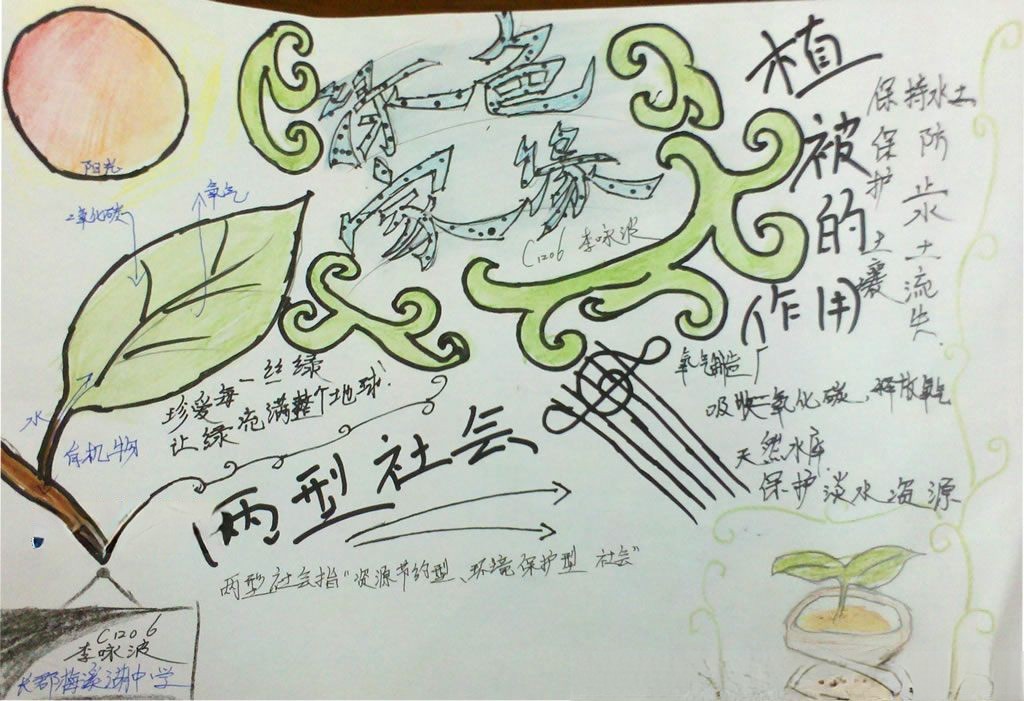 绿色
家缘
C1206 李咏波
阳光
二氧化碳
氧气
水
有机物
珍爱每一丝绿
让绿充满整个地球!
两型社会
两型社会指“资源节约型、环境保护型 社会”
植被的作用
保持水土
防止水土流失
保护土壤
氧气制造厂
吸收二氧化碳,释放氧气
天然水库
保护淡水资源
C1206
李咏波
长郡梅溪湖中学